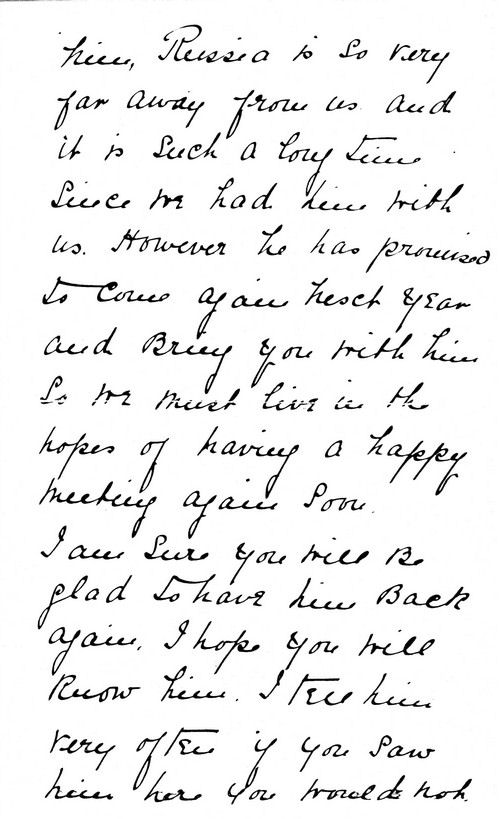 him, Russia is so very
far away from us and
it is such a long time
since we had him with
us. However he has promised
to come again next year
and Bring you with him
So we must live in the
hopes of having a happy
meeting again soon.
I am sure you will Be
glad to have him Back
again. I hope you will
Know him. I tell him
very often if you saw
him here you would not